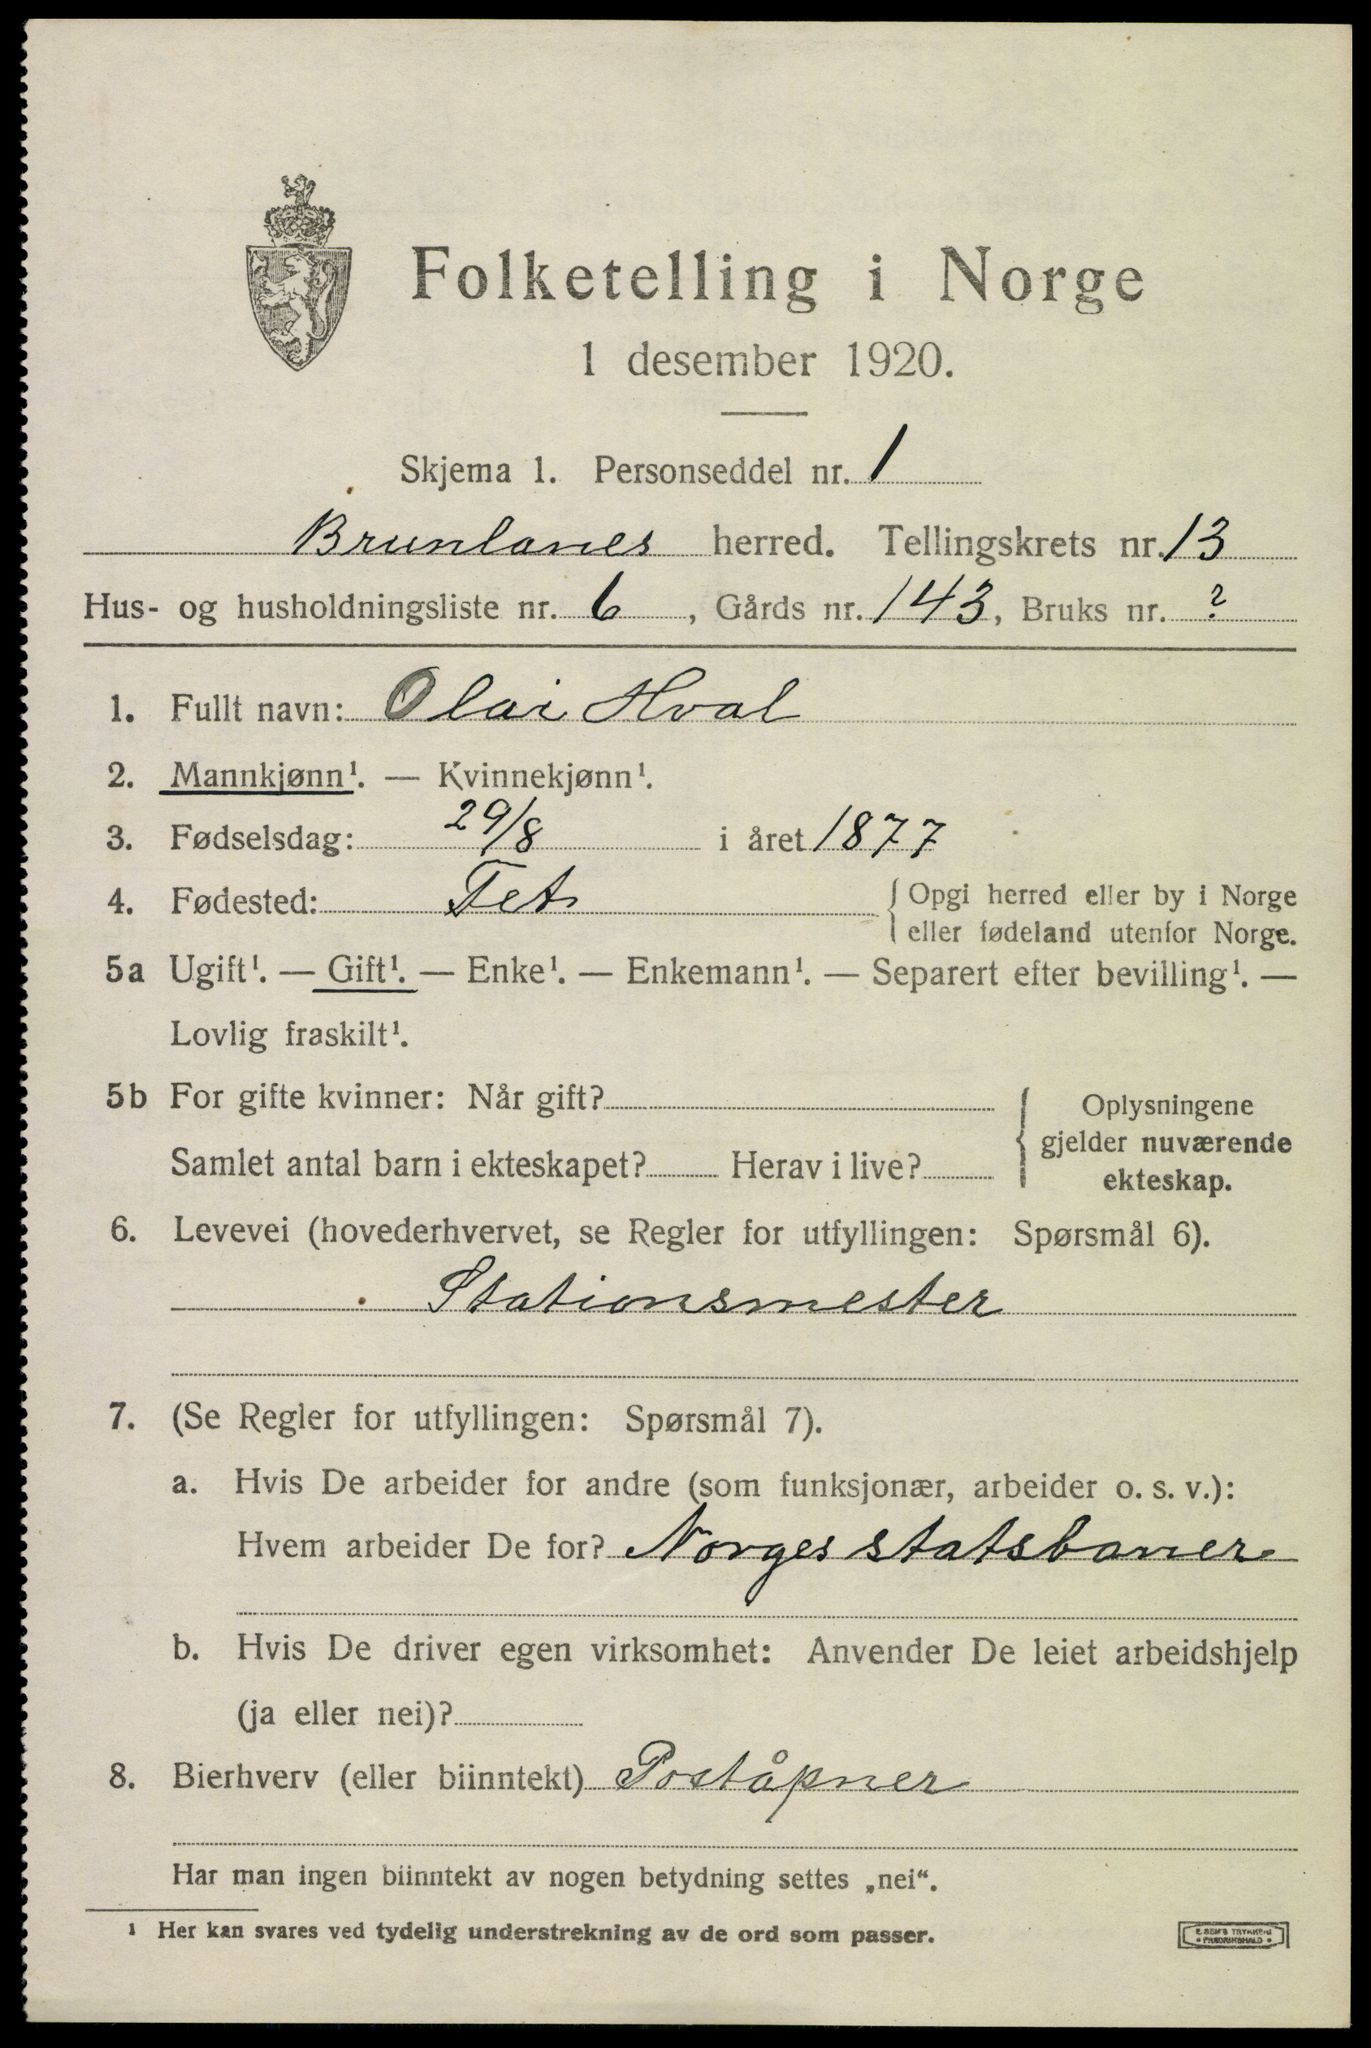 Folketelling i Norge
1 desember 1920.
Skjema 1. Personseddel nr. 1
Brunlanes herred. Tellingskrets nr. 13
Hus- og husholdningsliste nr. 6, Gårds nr. 143, Bruks nr. ?
1. Fullt navn: Olai Hval
2. Mannkjønn¹. — Kvinnekjønn¹.
3. Fødselsdag: 29/8 i året 1877
4. Fødested: Fet
Opgi herred eller by i Norge
eller fødeland utenfor Norge.
5a Ugift¹. — Gift¹. — Enke¹. — Enkemann¹. — Separert efter bevilling¹. —
Lovlig fraskilt¹.
5b For gifte kvinner: Når gift?
Samlet antal barn i ekteskapet? Herav i live?
Oplysningene
gjelder nuværende
ekteskap.
6. Levevei (hovederhvervet, se Regler for utfyllingen: Spørsmål 6).
Stationsmester
7. (Se Regler for utfyllingen: Spørsmål 7).
a. Hvis De arbeider for andre (som funksjonær, arbeider o. s. v.):
Hvem arbeider De for? Norges statsbaner
b. Hvis De driver egen virksomhet: Anvender De leiet arbeidshjelp
(ja eller nei)?
8. Bierhverv (eller biinntekt) Poståpner
Har man ingen biinntekt av nogen betydning settes „nei“.
¹ Her kan svares ved tydelig understrekning av de ord som passer.
FREDRIKSHALD